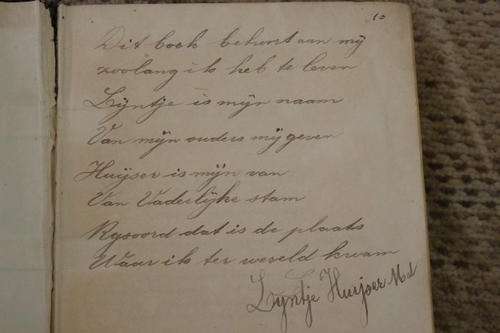 10
Dit boek behoort aan mij
zoolang ik heb te leven
Lijntje is mijn naam
Van mijn ouders mij geven
Huijser is mijn van
Van Vaderlijke stam
Rijsoord dat is de plaats
Waar ik ter wereld kwam
Lijntje Huijser Md